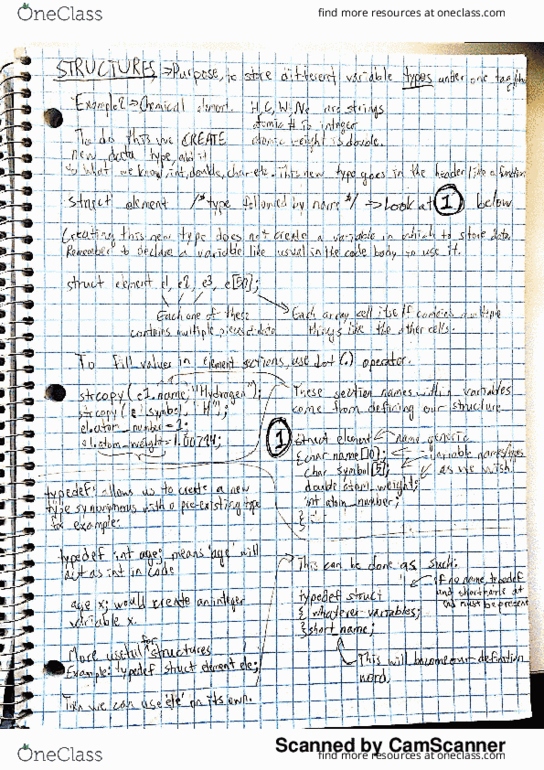 OneClass
find more resources at oneclass.com
STRUCTURES => Purpose, is to store different variable types under one tag
Example: => Chemical element. H, C, W, Ne are strings
atomic # is integer
atomic weight is double.
To do this we CREATE
new data type, ab it
what we know, int, double, char etc. This new type goes in the header like a function
struct element /*type followed by name*/ => Look at 1 below
Creating this new type does not create a variable in which to store data.
Remember to declare a variable like usual in the code body to use it.
struct element e1, e2, e3, e[50];
Each one of these
contains multiple pieces of data
Each array cell itself carries multiple
things like the other cells.
To fill values in element sections, use dot (.) operator.
strcopy (e1.name, "Hydrogen");
strcopy (e1.symbol, "H");
e1.atom_number = 1;
e1.atom_weight = 1.00794;
These section names within variables
come from defining our structure.
1 struct element <- name generic
{char name[10];
char symbol[5];
double atom_weight;
int atom_number;
};
variable names/types
as we wish.
typedef: allows us to create a new
type synonymous with a pre-existing type
for example:
typedef int age; means 'age' will
act as int in code
age x; would create an integer
variable x.
More useful for structures
Example: typedef struct element ele;
Then we can use 'ele' on its own.
This can be done as such:
typedef struct
{ whatever variables;
} short_name;
if no name, typedef
and short name at
end must be present
This will become our definition
word.
Scanned by CamScanner
OneClass
find more resources at oneclass.com